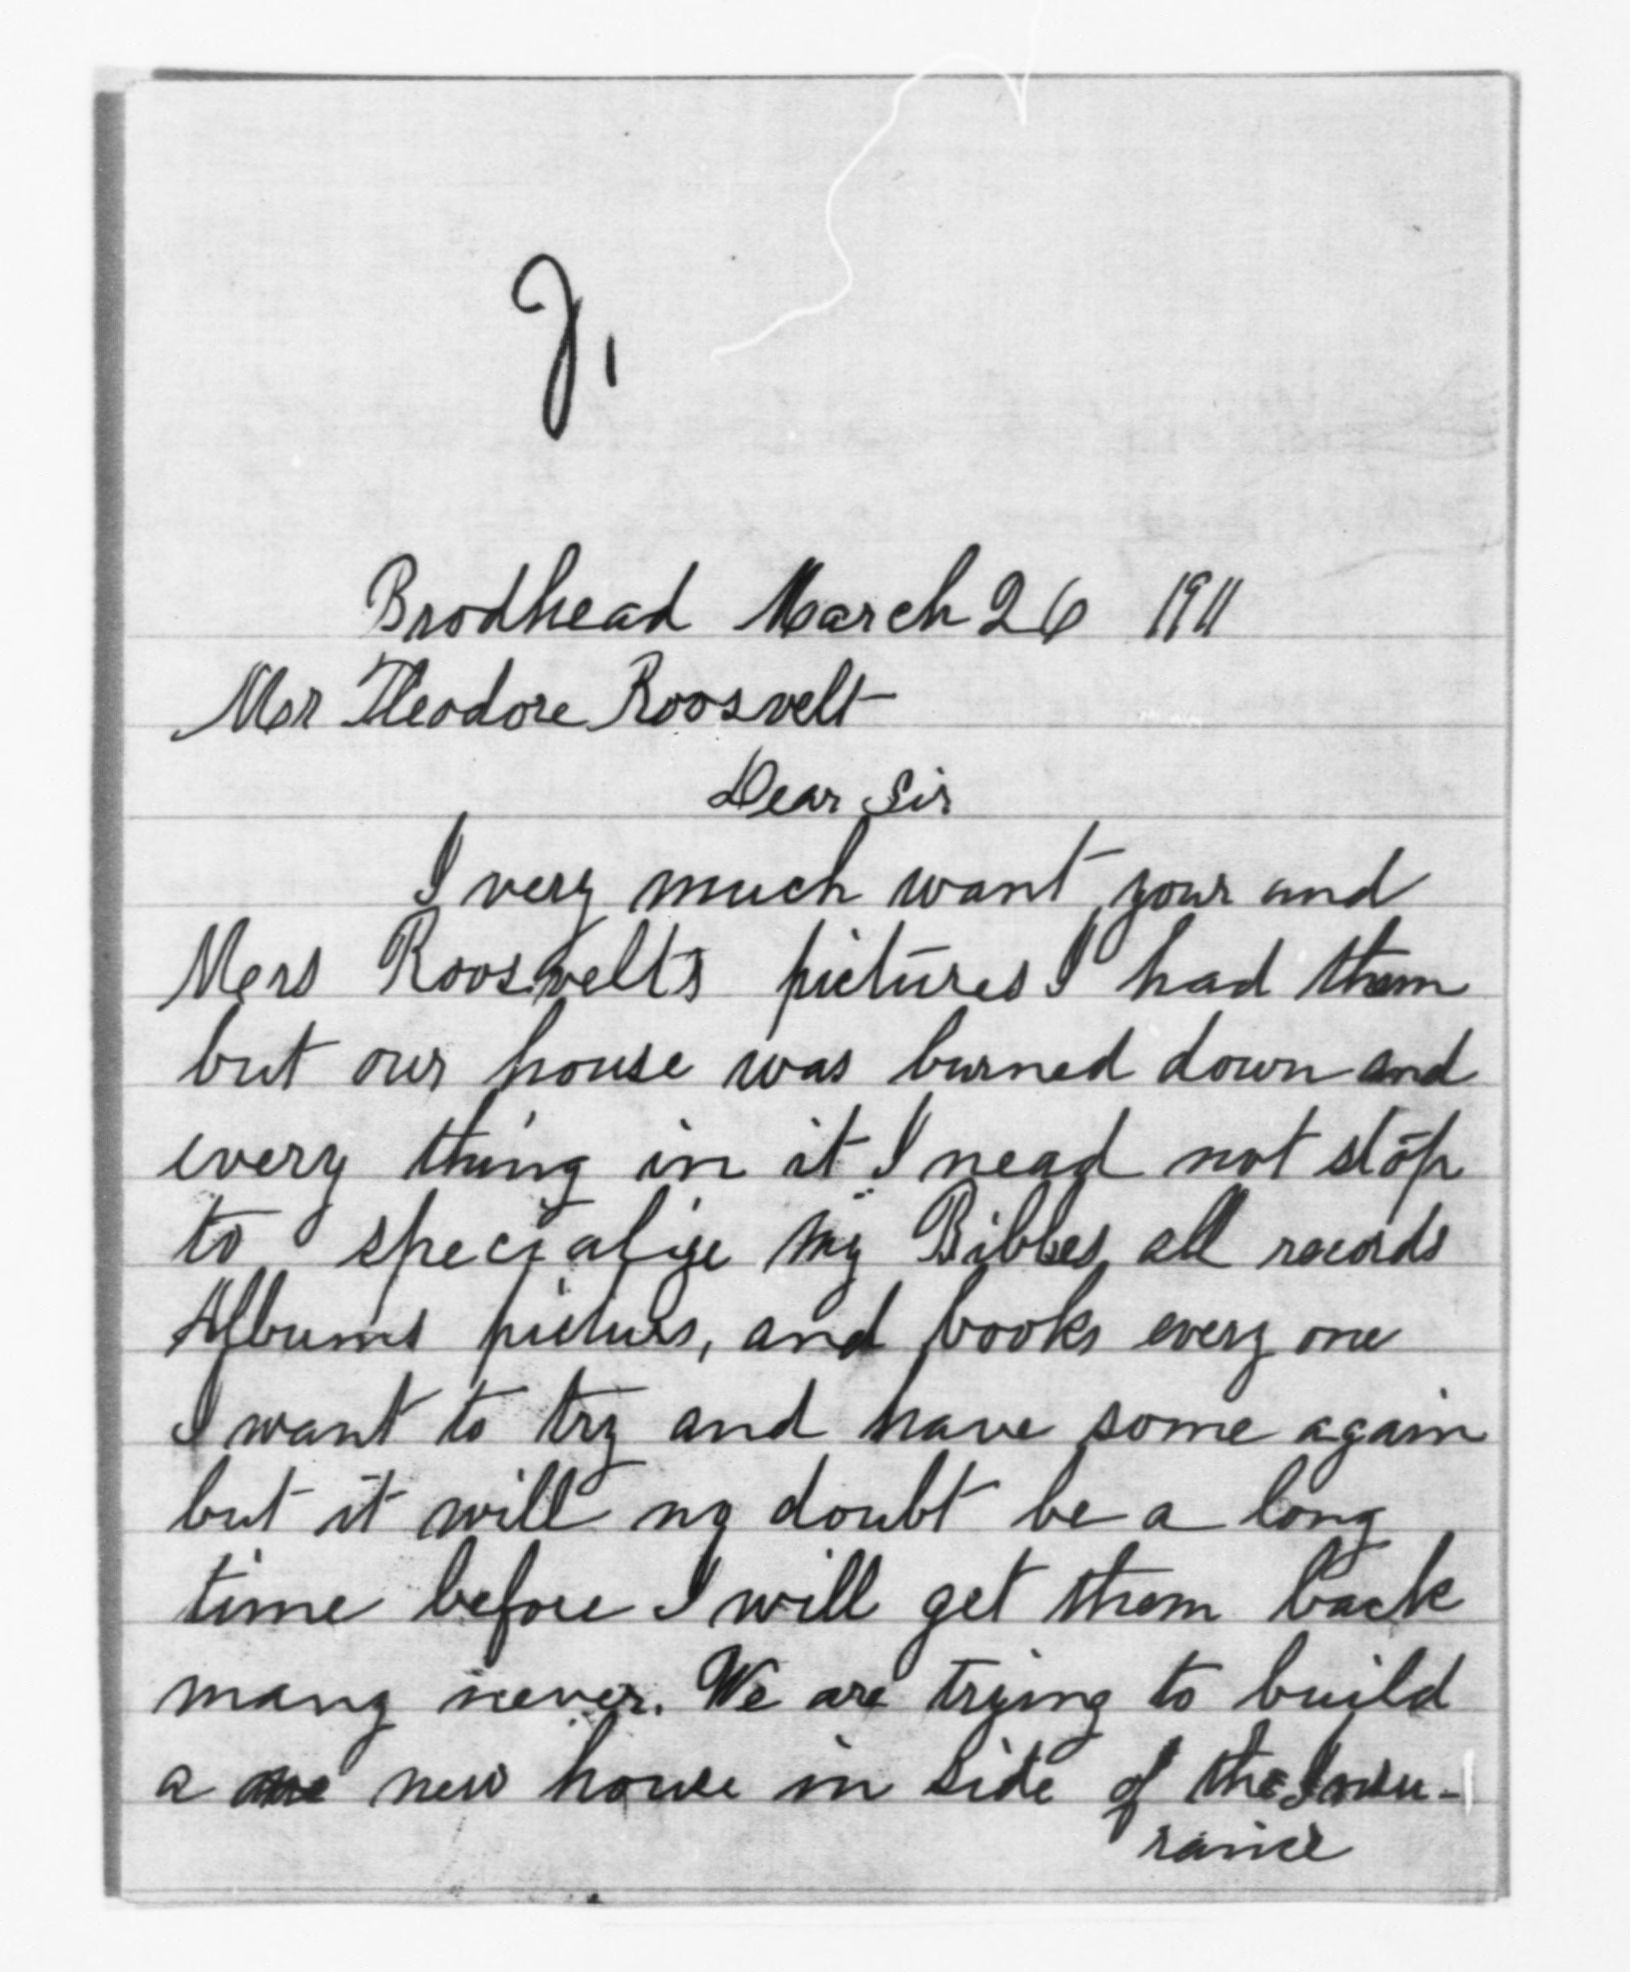 J,
Brodhead March 26 1911
Mr Theodore Roosvelt
Dear Sir
I very much want your and
Mers Roosvelts pictures I had them
but our house was burned down and
every thing in it I nead not stop
to specialize my Bibles all records
Albums picturs, and books every one
I want to try and have some again
but it will no doubt be a long
time before I will get them back
many never. We are trying to build
a new house in side of the Insu-
rance